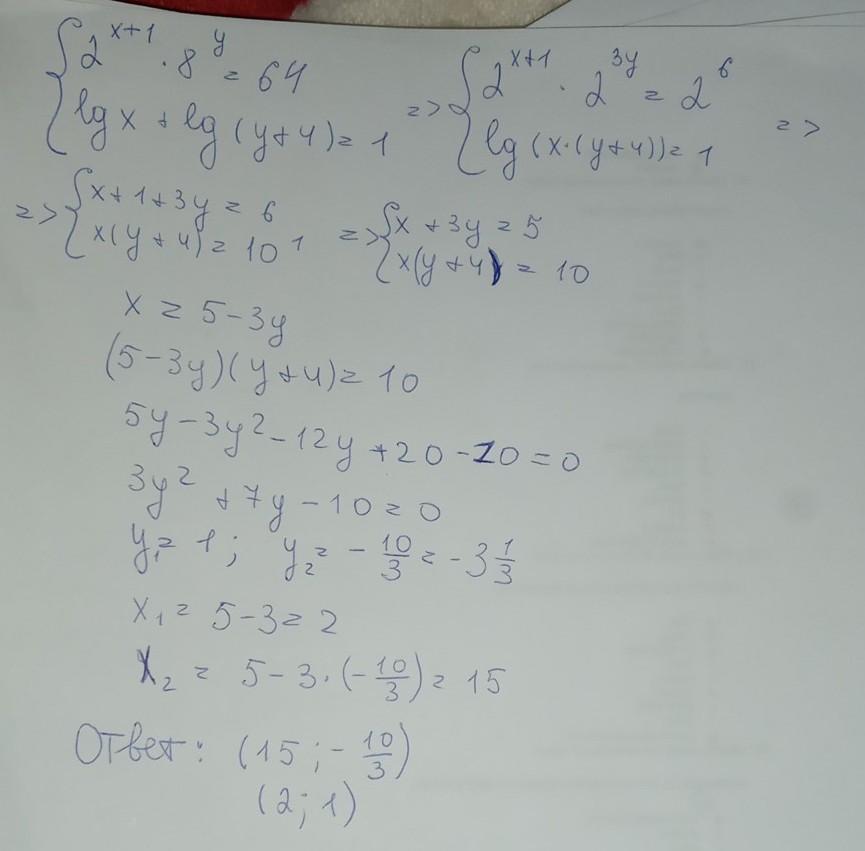 {2^(x+1) · 8^y = 64 => {2^(x+1) · 2^(3y) = 2^6 =>
{lg x + lg (y+4) = 1 {lg (x·(y+4)) = 1
=> {x+1+3y = 6 => {x + 3y = 5
{x(y+4) = 10^1 {x(y+4) = 10
x = 5-3y
(5-3y)(y+4) = 10
5y - 3y² - 12y + 20 - 10 = 0
3y² + 7y - 10 = 0
y₁ = 1; y₂ = - 10/3 = -3 1/3
x₁ = 5-3 = 2
x₂ = 5 - 3·(-10/3) = 15
Ответ: (15; - 10/3)
(2; 1)